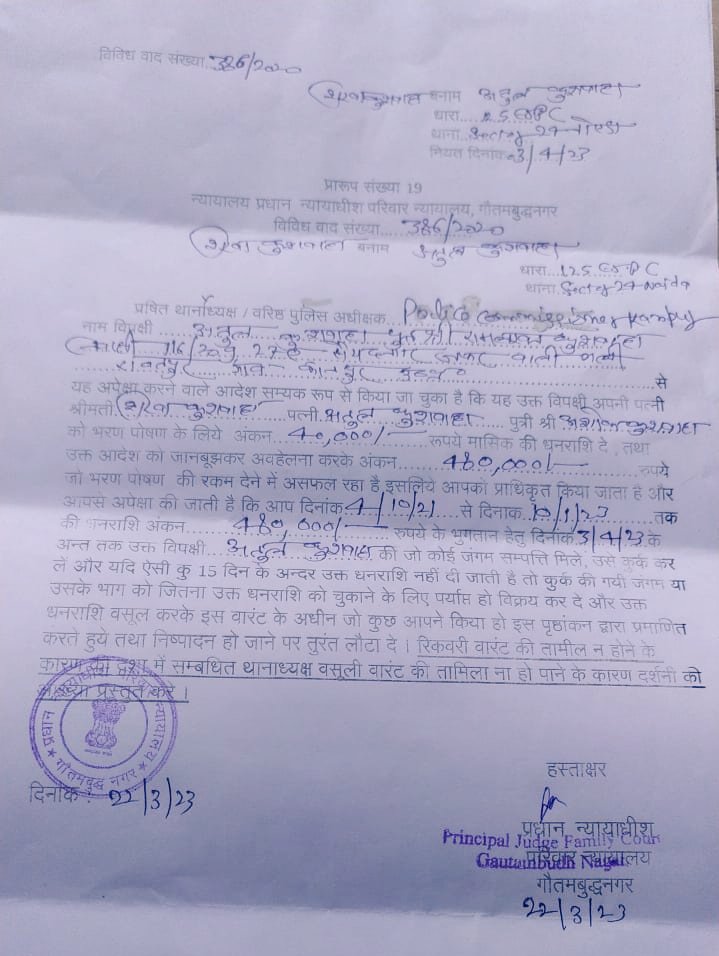 विविध वाद संख्या 386/2020
बनाम अतुल कुशवाहा
धारा 125 CRPC
थाना Sector 24 नोएडा
नियत दिनांक 3/4/23
प्रारूप संख्या 19
न्यायालय प्रधान न्यायाधीश परिवार न्यायालय, गौतमबुद्धनगर
विविध वाद संख्या 386/2020
कुशवाहा बनाम अतुल कुशवाहा
धारा 125 CRPC
थाना Sector 24 Noida
प्रषित थानाध्यक्ष / वरिष्ठ पुलिस अधीक्षक Police Commissioner Kanpur
नाम विपक्षी अतुल कुशवाहा पुत्र श्री कुशवाहा
वाली गली
रावतपुर कानपुर से
यह अपेक्षा करने वाले आदेश सम्यक रूप से किया जा चुका है कि यह उक्त विपक्षी अपनी पत्नी
श्रीमती कुशवाहा पत्नी अतुल कुशवाहा पुत्री श्री कुशवाहा
को भरण पोषण के लिये अंकन 40,000/- रूपये मासिक की धनराशि दे , तथा
उक्त आदेश को जानबूझकर अवहेलना करके अंकन 480,000/- रुपये
जो भरण पोषण की रकम देने में असफल रहा है इसलिये आपको प्राधिकृत किया जाता है और
आपसे अपेक्षा की जाती है कि आप दिनांक 4/10/21 से दिनांक 10/1/23 तक
की धनराशि अंकन 480,000/- रुपये के भुगतान हेतु दिनांक 3/4/23 के
अन्त तक उक्त विपक्षी अतुल कुशवाहा की जो कोई जंगम सम्पत्ति मिले, उसे कुर्क कर
लें और यदि ऐसी कु 15 दिन के अन्दर उक्त धनराशि नहीं दी जाती है तो कुर्क की गयी जंगम या
उसके भाग को जितना उक्त धनराशि को चुकाने के लिए पर्याप्त हो विक्रय कर दे और उक्त
धनराशि वसूल करके इस वारंट के अधीन जो कुछ आपने किया हो इस पृष्ठांकन द्वारा प्रमाणित
करते हुये तथा निष्पादन हो जाने पर तुरंत लौटा दे । रिकवरी वारंट की तामील न होने के
कारण की दशा में सम्बधित थानाध्यक्ष वसूली वारंट की तामिला ना हो पाने के कारण दर्शनी को
प्रस्तुत करे ।
प्रधान न्यायाधीश परिवार न्यायालय गौतमबुद्ध नगर
हस्ताक्षर
दिनांक : 22/3/23
प्रधान न्यायाधीश
Principal Judge Family Court
परिवार न्यायालय
Gautambudh Nagar
गौतमबुद्धनगर
22/3/23